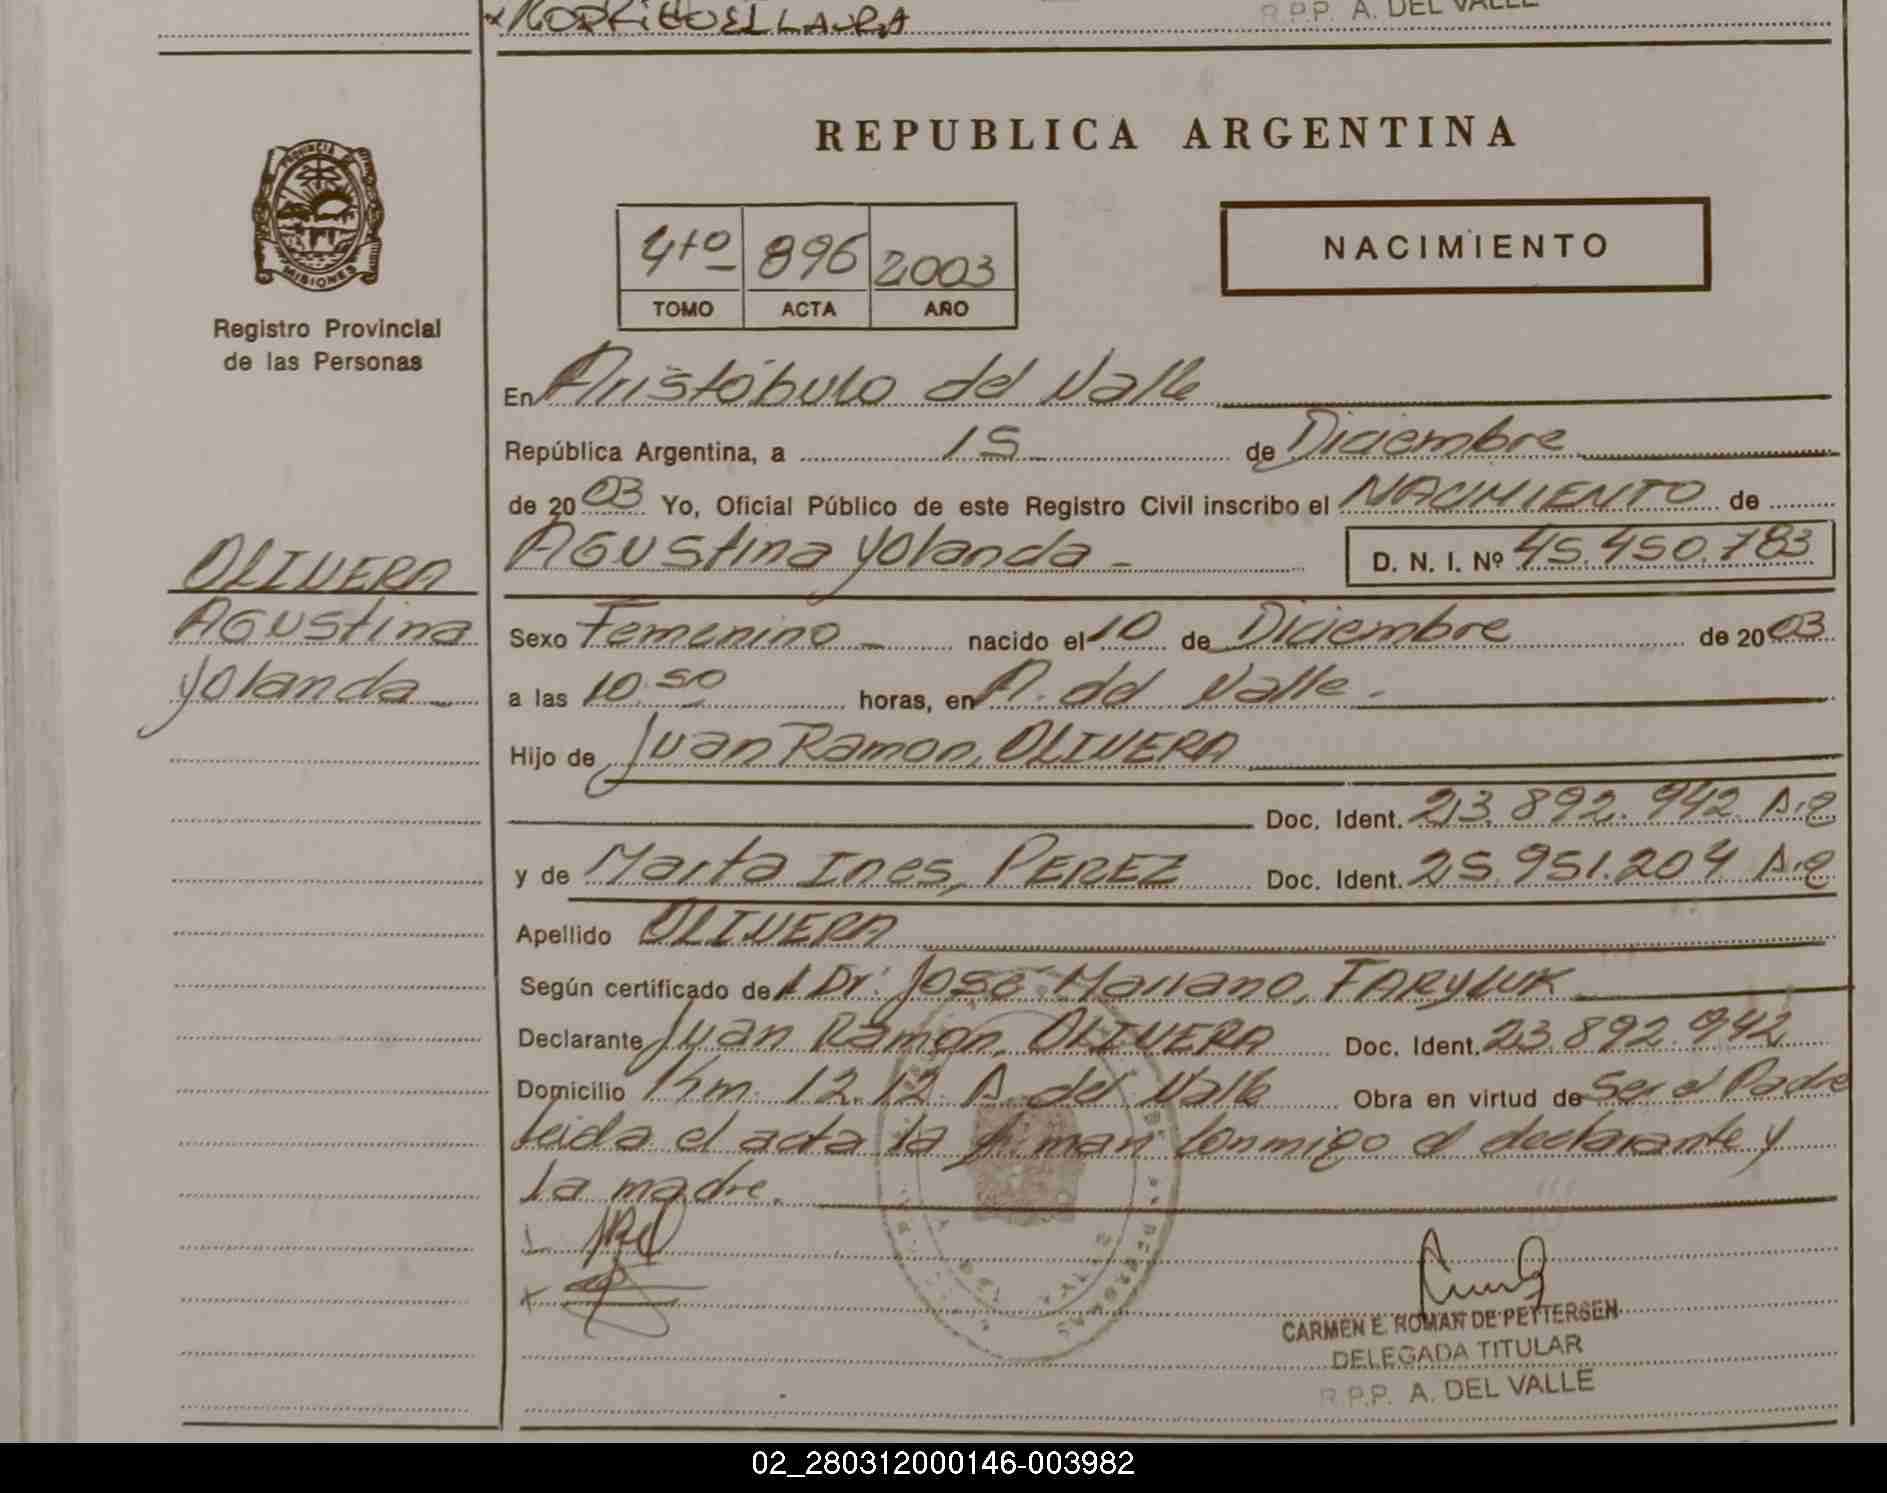 x RODRIGUEZ LAURA
R.P.P. A. DEL VALLE
PROVINCIA DE
MISIONES
Registro Provincial
de las Personas
REPUBLICA ARGENTINA
4to 896 2003
TOMO ACTA AÑO
NACIMIENTO
En Aristóbulo del Valle
República Argentina, a 15 de Diciembre
de 2003 Yo, Oficial Público de este Registro Civil inscribo el NACIMIENTO de
AGUStina Yolanda D. N. I. Nº 45.450.783
OLIVERA
AGUStina
Yolanda
Sexo Femenino nacido el 10 de Diciembre de 2003
a las 10:50 horas, en A. del Valle.
Hijo de Juan Ramon, OLIVERA
Doc. Ident. 23.892.942
y de Marta Ines, PEREZ Doc. Ident. 25.951.204
Apellido OLIVERA
Según certificado del Dr. José Mariano, TARYLUK
Declarante Juan Ramon, OLIVERA Doc. Ident. 23.892.942
Domicilio Km. 12.12. A. del Valle Obra en virtud de Ser el Padre
leida el acta la firman conmigo el declarante y
la madre.
CARMEN E. ROMAN DE PETTERSEN
DELEGADA TITULAR
R.P.P. A. DEL VALLE
02_280312000146-003982